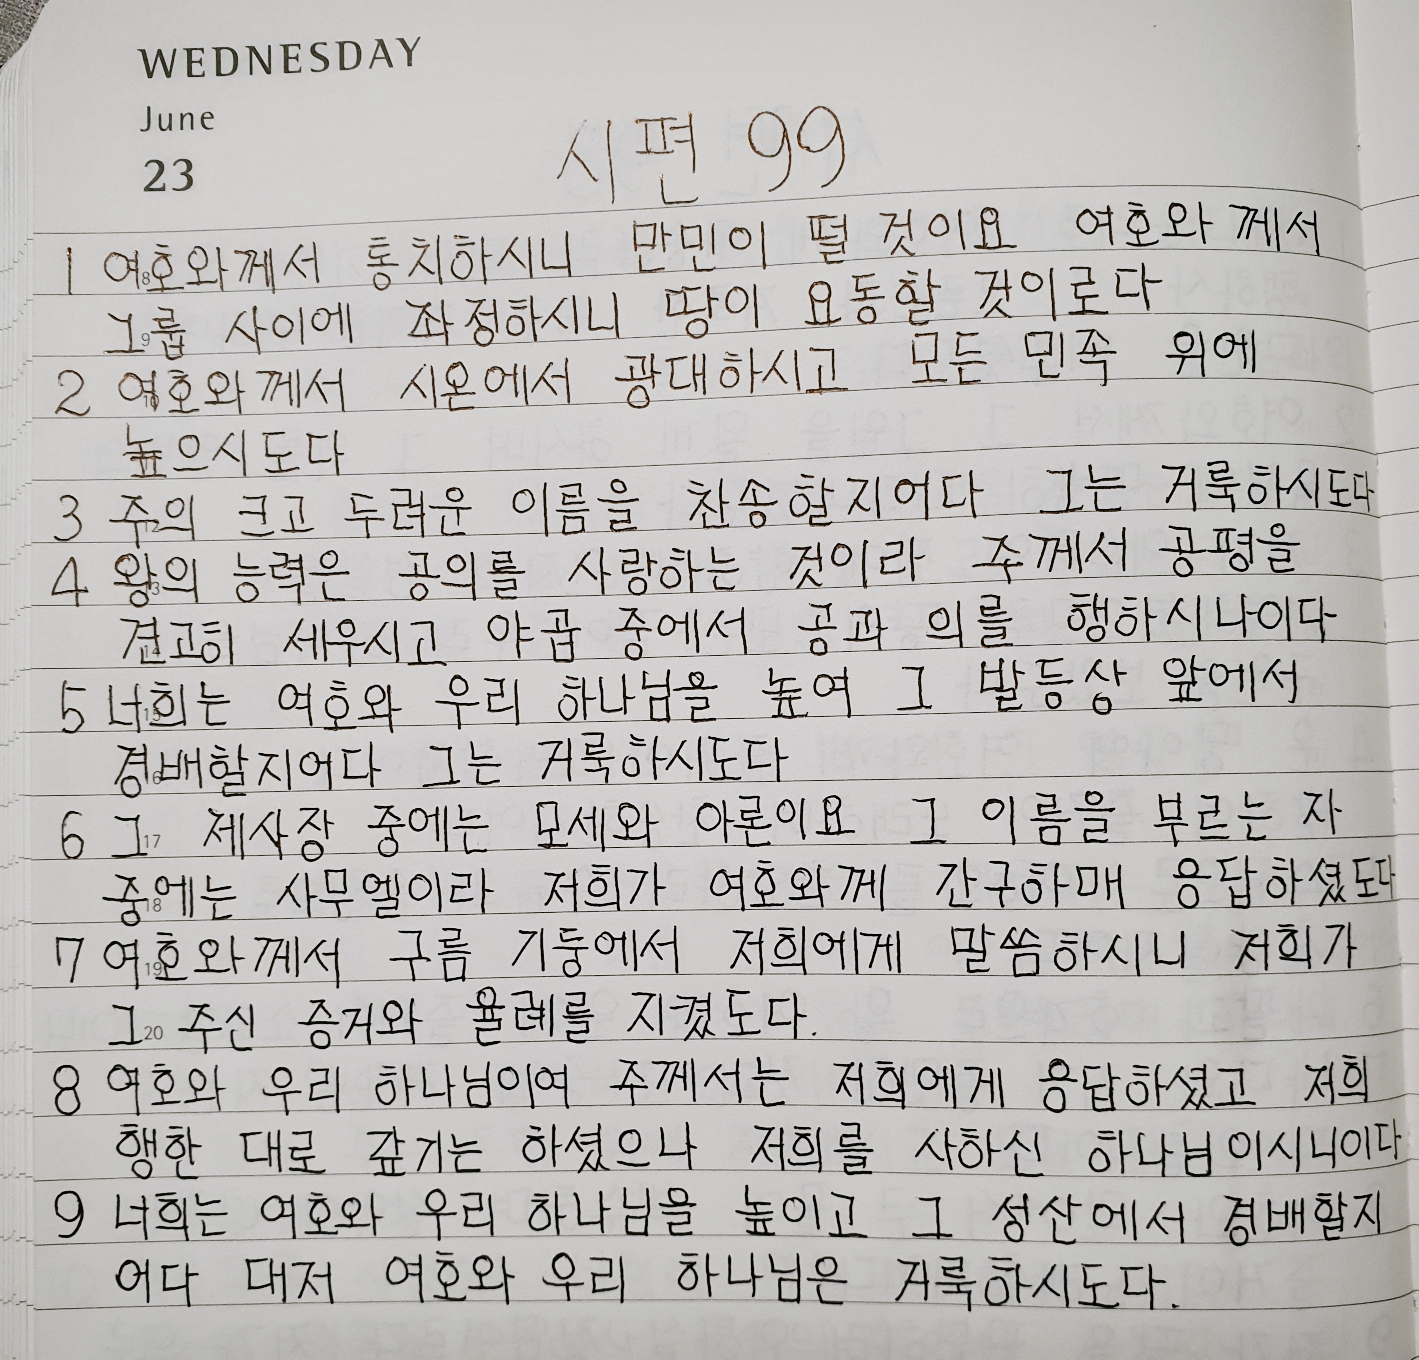 WEDNESDAY
June
23
시편 99
1 여호와께서 통치하시니 만민이 떨 것이요 여호와께서
그룹 사이에 좌정하시니 땅이 요동할 것이로다
2 여호와께서 시온에서 광대하시고 모든 민족 위에
높으시도다
3 주의 크고 두려운 이름을 찬송할지어다 그는 거룩하시도다
4 왕의 능력은 공의를 사랑하는 것이라 주께서 공평을
견고히 세우시고 야곱 중에서 공과 의를 행하시나이다
5 너희는 여호와 우리 하나님을 높여 그 발등상 앞에서
경배할지어다 그는 거룩하시도다
6 그 제사장 중에는 모세와 아론이요 그 이름을 부르는 자
중에는 사무엘이라 저희가 여호와께 간구하매 응답하셨도다
7 여호와께서 구름 기둥에서 저희에게 말씀하시니 저희가
그 주신 증거와 율례를 지켰도다.
8 여호와 우리 하나님이여 주께서는 저희에게 응답하셨고 저희
행한 대로 갚기는 하셨으나 저희를 사하신 하나님이시니이다
9 너희는 여호와 우리 하나님을 높이고 그 성산에서 경배할지
어다 대저 여호와 우리 하나님은 거룩하시도다.